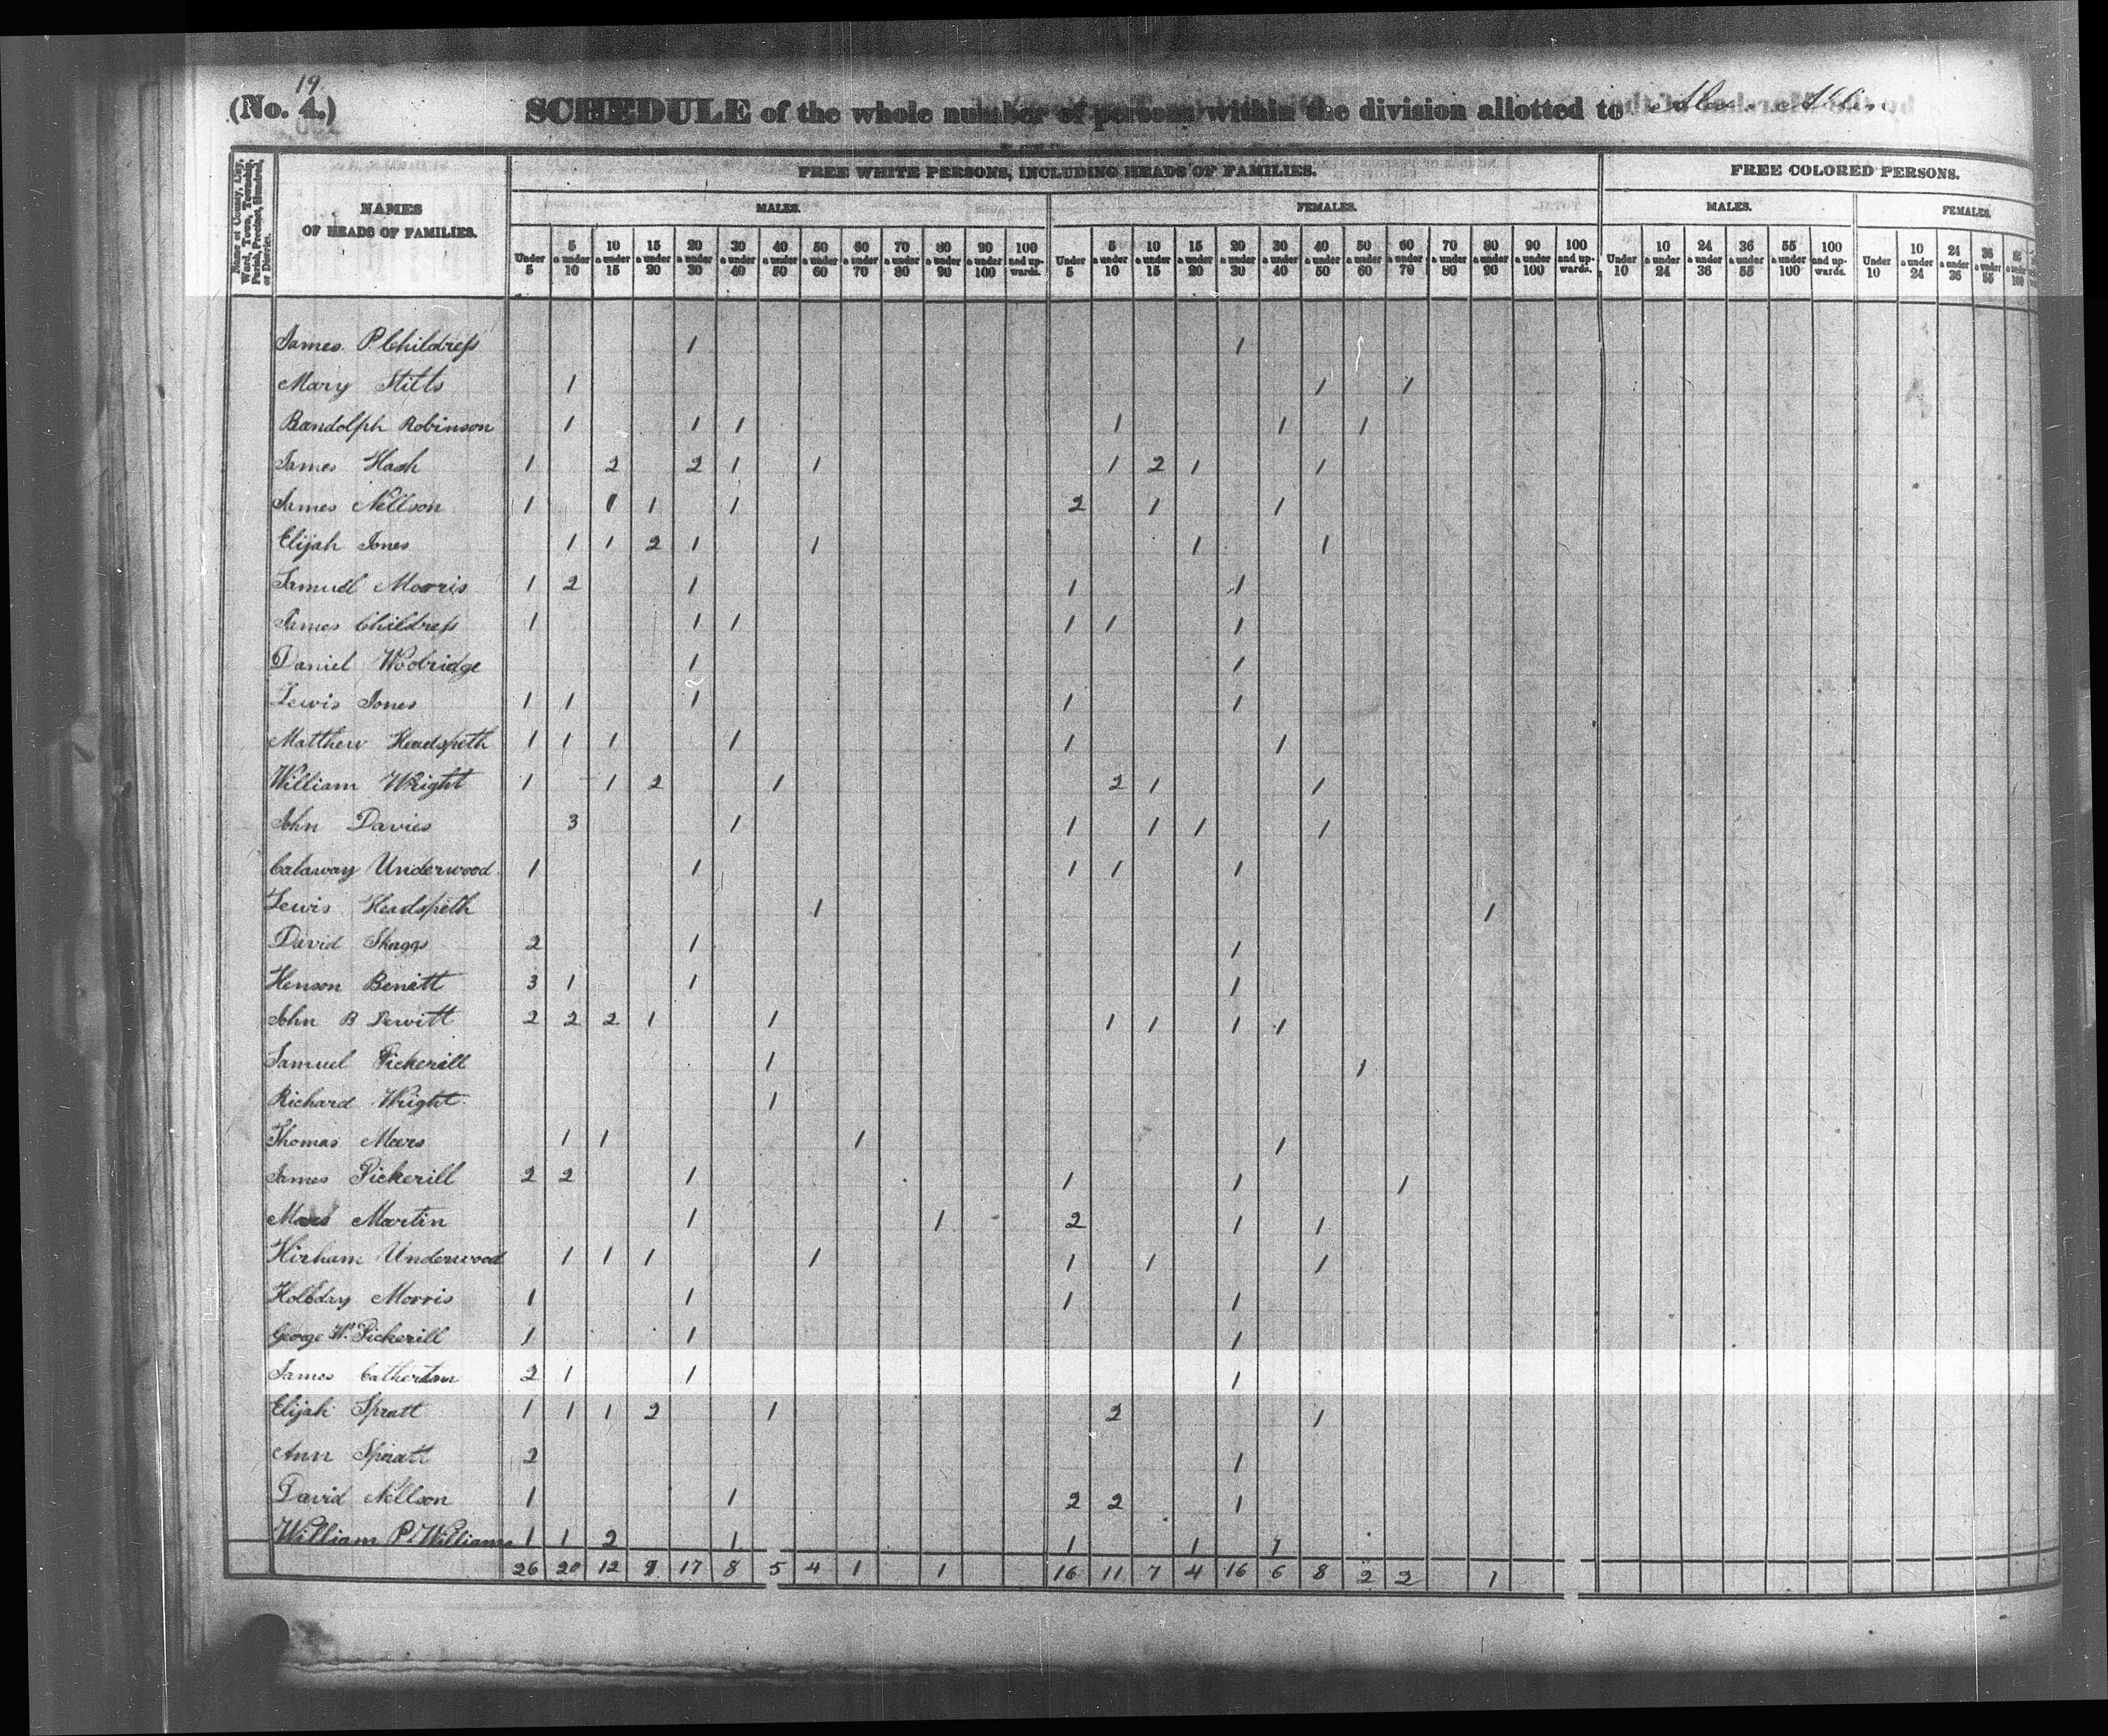 19
(No. 4.) SCHEDULE of the whole number of persons within the division allotted to
Name of County, City, Ward, Town, Township, Parish, Precinct, Hundred, or District.
NAMES OF HEADS OF FAMILIES.
FREE WHITE PERSONS, INCLUDING HEADS OF FAMILIES.
FREE COLORED PERSONS.
MALES. FEMALES. MALES. FEMALES.
Under 5 5 & under 10 10 & under 15 15 & under 20 20 & under 30 30 & under 40 40 & under 50 50 & under 60 60 & under 70 70 & under 80 80 & under 90 90 & under 100 100 and upwards. Under 5 5 & under 10 10 & under 15 15 & under 20 20 & under 30 30 & under 40 40 & under 50 50 & under 60 60 & under 70 70 & under 80 80 & under 90 90 & under 100 100 and upwards. Under 10 10 & under 24 24 & under 36 36 & under 55 55 & under 100 100 and upwards. Under 10 10 & under 24 24 & under 36 36 & under 55
James P Childress 1 1
Mary Stitts 1 1 1
Randolph Robinson 1 1 1 1 1 1
James Hash 1 2 2 1 1 1 2 1 1
James Nellson 1 1 1 1 2 1 1
Elijah Jones 1 1 2 1 1 1 1
Samuel Morris 1 2 1 1 1
James Childress 1 1 1 1 1 1
Daniel Woobridge 1 1
Lewis Jones 1 1 1 1 1
Matthew Headspeth 1 1 1 1 1 1
William Wright 1 1 2 1 2 1 1
John Davies 3 1 1 1 1 1
Calaway Underwood 1 1 1 1 1
Lewis Headspeth 1 1
David Skaggs 2 1 1
Henson Benett 3 1 1 1
John B Dewitt 2 2 2 1 1 1 1 1 1
Samuel Pickerill 1 1
Richard Wright 1
Thomas Meers 1 1 1 1
James Pickerill 2 2 1 1 1 1
Martin 1 1 2 1 1
Hirham Underwood 1 1 1 1 1 1 1
Holeday Morris 1 1 1 1
George W. Pickerill 1 1 1
James 2 1 1 1
Elijah Spratt 1 1 1 2 1 2 1
Ann Spratt 2 1
David Nellson 1 1 2 2 1
William P Williams 1 1 2 1 1 1 1
26 20 12 9 17 8 5 4 1 1 16 11 7 4 16 6 8 2 2 1